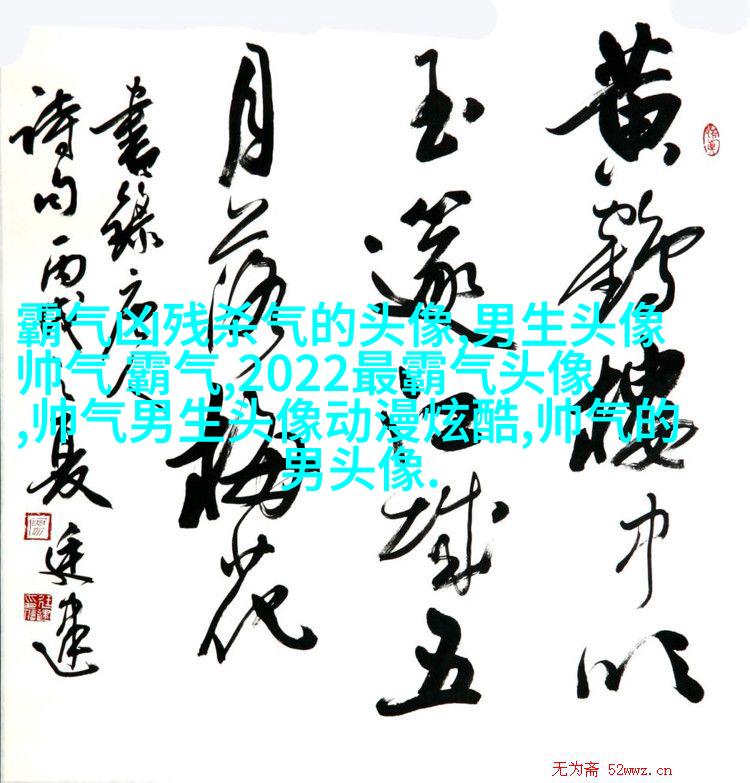 黄鶴樓中吹
玉篴江城五
月落梅花
書錄古人
詩句丙戌之夏
霸气凶残杀气的头像,男生头像
帅气 霸气,2022最霸气头像
,帅气男生头像动漫炫酷,帅气的
男头像.
无为斋 52wwz.cn